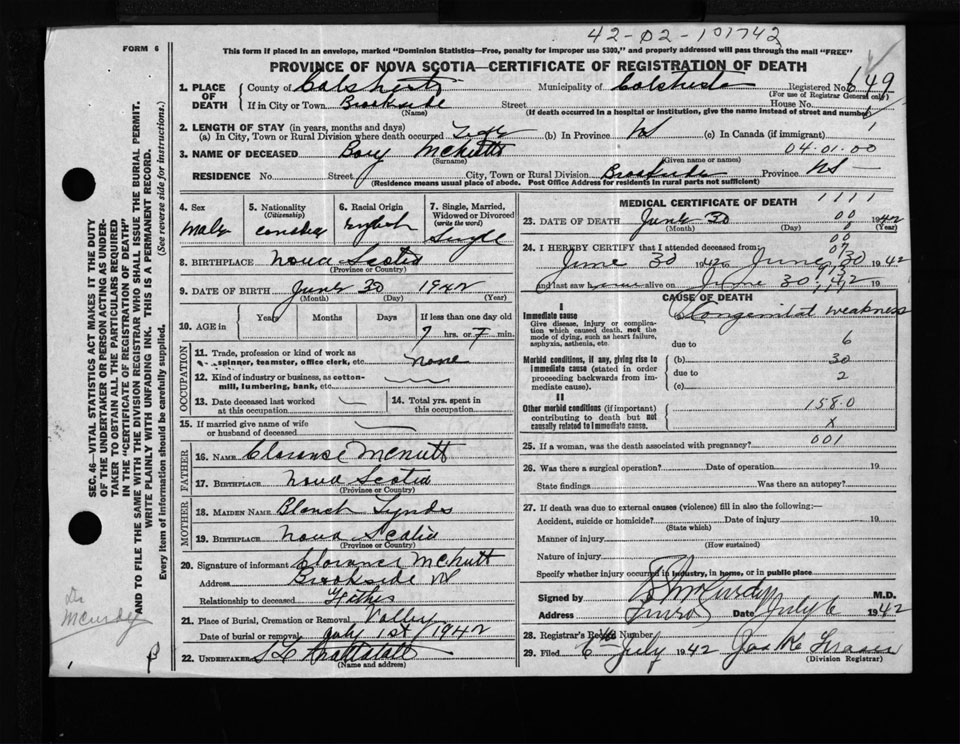 42-02-101742
FORM 6
This form if placed in an envelope, marked "Dominion Statistics—Free, penalty for improper use $300," and properly addressed will pass through the mail "FREE"
PROVINCE OF NOVA SCOTIA—CERTIFICATE OF REGISTRATION OF DEATH
1. PLACE OF DEATH
County of Municipality of Registered No. 649
(For use of Registrar General only)
If in City or Town Brookside Street House No.
(Name) (If death occurred in a hospital or institution, give the name instead of street and number)
2. LENGTH OF STAY (in years, months and days)
(a) In City, Town or Rural Division where death occurred Life (b) In Province NS (c) In Canada (if immigrant) 1
3. NAME OF DECEASED McNutt 04.01.00
(Surname) (Given name or names)
RESIDENCE No. Street City, Town or Rural Division Brookside Province NS
(Residence means usual place of abode. Post Office Address for residents in rural parts not sufficient)
4. Sex Male
5. Nationality (Citizenship)
6. Racial Origin English
7. Single, Married, Widowed or Divorced (write the word) Single
8. BIRTHPLACE Nova Scotia
(Province or Country)
9. DATE OF BIRTH June 30 1942
(Month) (Day) (Year)
10. AGE in Years Months Days If less than one day old
7 hrs. or min.
OCCUPATION
11. Trade, profession or kind of work as spinner, teamster, office clerk, etc. none
12. Kind of industry or business, as cotton-mill, lumbering, bank, etc. —
13. Date deceased last worked at this occupation —
14. Total yrs. spent in this occupation
15. If married give name of wife or husband of deceased —
FATHER
16. NAME Clarence McNutt
17. BIRTHPLACE Nova Scotia
(Province or Country)
MOTHER
18. MAIDEN NAME Blanch Lynds
19. BIRTHPLACE Nova Scotia
(Province or Country)
20. Signature of informant Clarence McNutt
Address Brookside NS
Relationship to deceased Father
21. Place of Burial, Cremation or Removal Valley
Date of burial or removal July 1st 1942
22. UNDERTAKER
(Name and address)
MEDICAL CERTIFICATE OF DEATH 1111
23. DATE OF DEATH June 30 00 1942
(Month) (Day) (Year)
24. I HEREBY CERTIFY that I attended deceased from
June 30 1942 to June 30 1942
and last saw h alive on June 30, 1942 19
CAUSE OF DEATH
I
Immediate cause
Give disease, injury or complication which caused death, not the mode of dying, such as heart failure, asphyxia, asthenia, etc.
Congenital weakness
due to 6
Morbid conditions, if any, giving rise to immediate cause (stated in order proceeding backwards from immediate cause).
(b) 30
due to 2
(c)
II
Other morbid conditions (if important) contributing to death but not causally related to immediate cause.
158.0
X
25. If a woman, was the death associated with pregnancy? 001
26. Was there a surgical operation? Date of operation 19
State findings Was there an autopsy?
27. If death was due to external causes (violence) fill in also the following:—
Accident, suicide or homicide? Date of injury 19
(State which)
Manner of injury
(How sustained)
Nature of injury
Specify whether injury occurred in industry, in home, or in public place
Signed by M.D.
Address Truro Date July 6 1942
28. Registrar's Record Number
29. Filed 6 July 1942
(Division Registrar)
SEC. 46—VITAL STATISTICS ACT MAKES IT THE DUTY OF THE UNDERTAKER OR PERSON ACTING AS UNDERTAKER TO OBTAIN ALL THE PARTICULARS REQUIRED IN THE "CERTIFICATE OF REGISTRATION OF DEATH"
AND TO FILE THE SAME WITH THE DIVISION REGISTRAR WHO SHALL ISSUE THE BURIAL PERMIT.
WRITE PLAINLY WITH UNFADING INK. THIS IS A PERMANENT RECORD.
Every item of information should be carefully supplied. (See reverse side for instructions.)
Dr
McCurdy